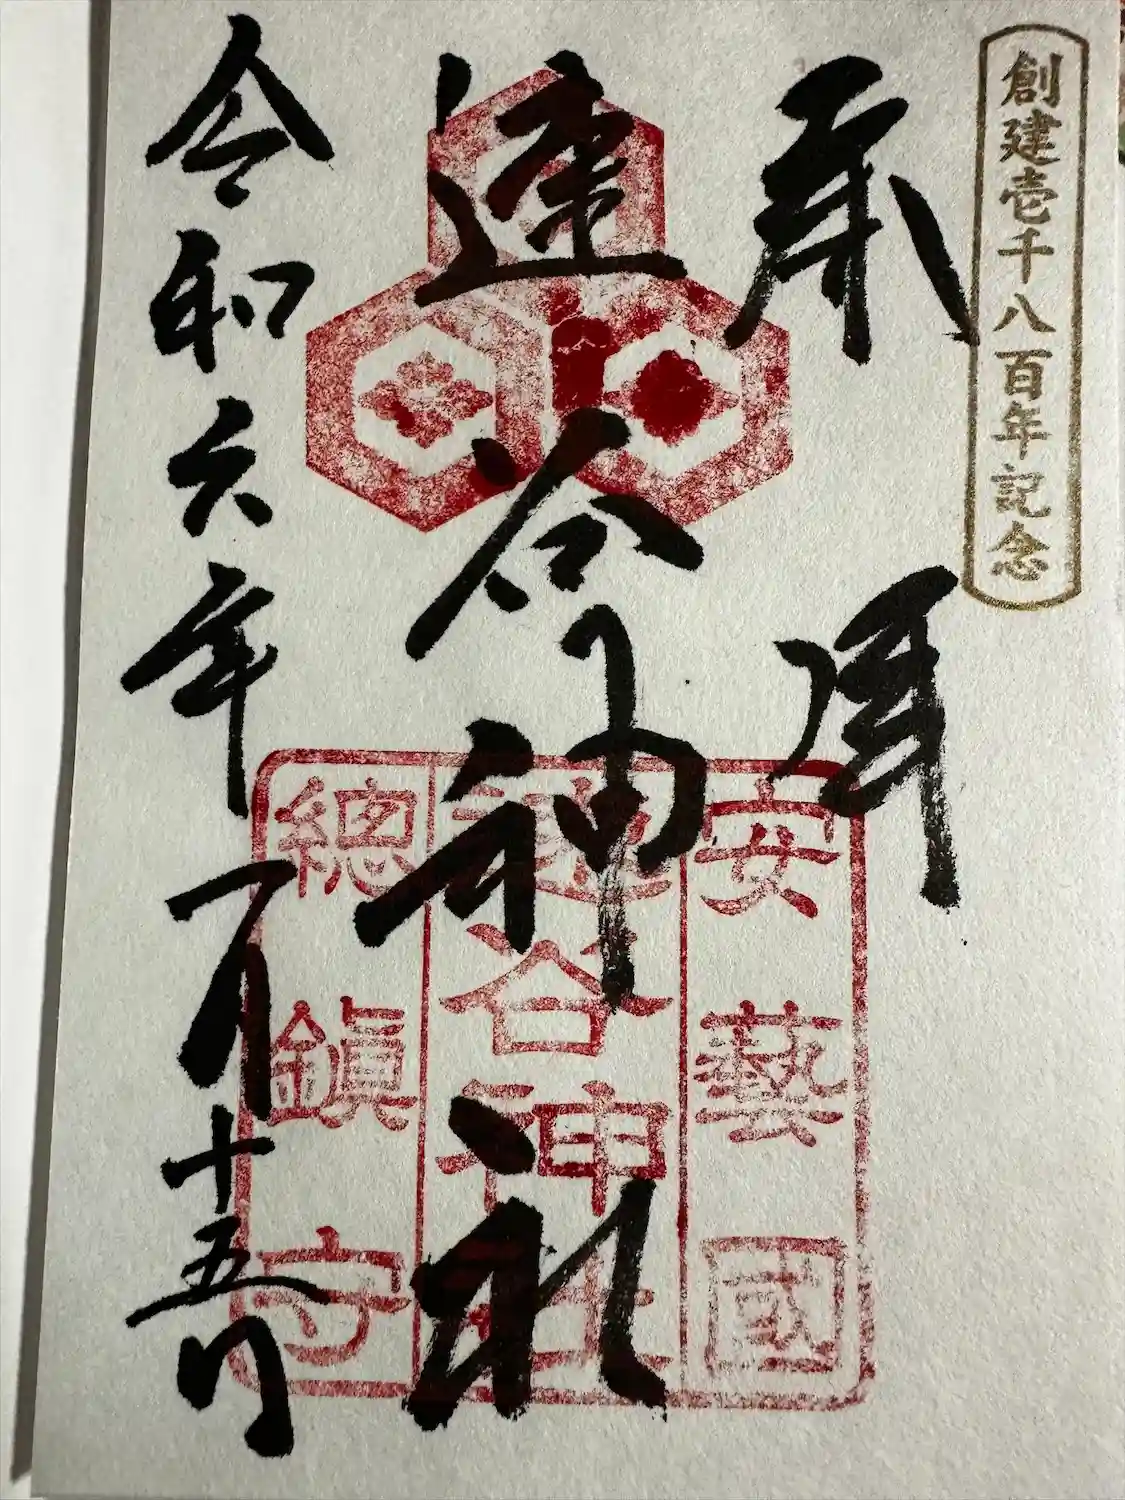 創建壱千八百年記念
奉拝
速谷神社
令和六年一月十五日
安藝國
速谷神社
總鎭守